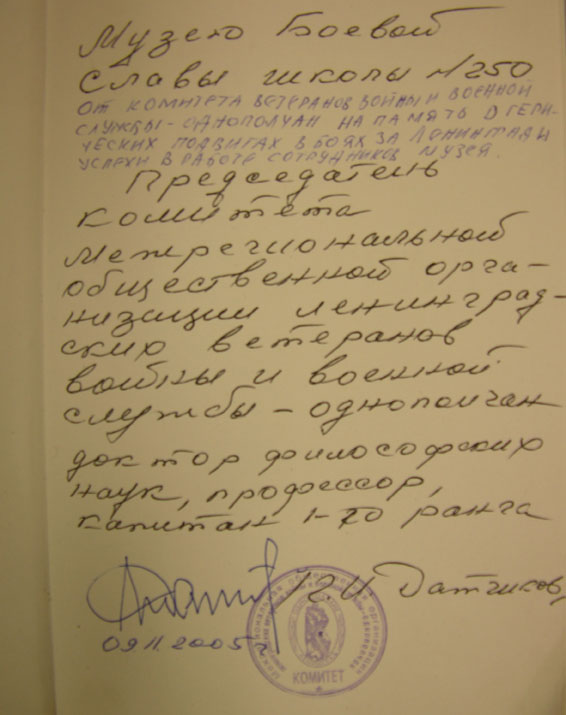 Музею Боевой
Славы школы №250
ОТ КОМИТЕТА ВЕТЕРАНОВ ВОЙНЫ И ВОЕННОЙ
СЛУЖБЫ-ОДНОПОЛЧАН НА ПАМЯТЬ О ГЕРИ-
ЧЕСКИХ ПОДВИГАХ В БОЯХ ЗА ЛЕНИНГРАД И
УСПЕХИ В РАБОТЕ СОТРУДНИКОВ МУЗЕЯ.
Председатель
комитета
Межрегиональной
общественной орга-
низации ленинград-
ских ветеранов
войны и военной
службы - однополчан
доктор философских
наук, профессор,
капитан 1-го ранга
Датчиков,
09.11.2005г
КОМИТЕТ